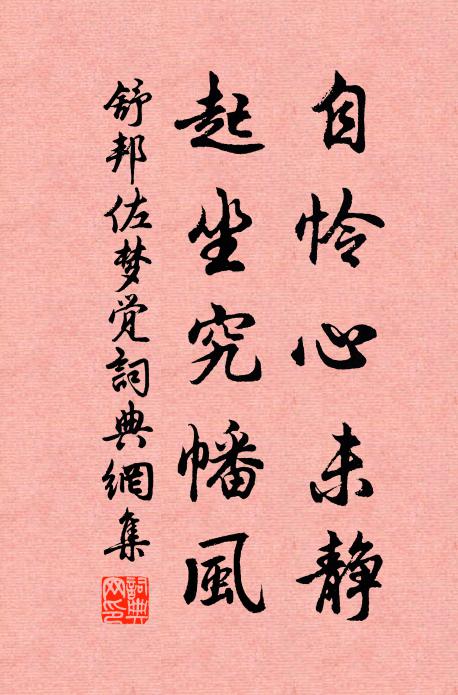 自怜心未静
起坐究幡風
舒邦佐梦觉詞典網集
詞典网印